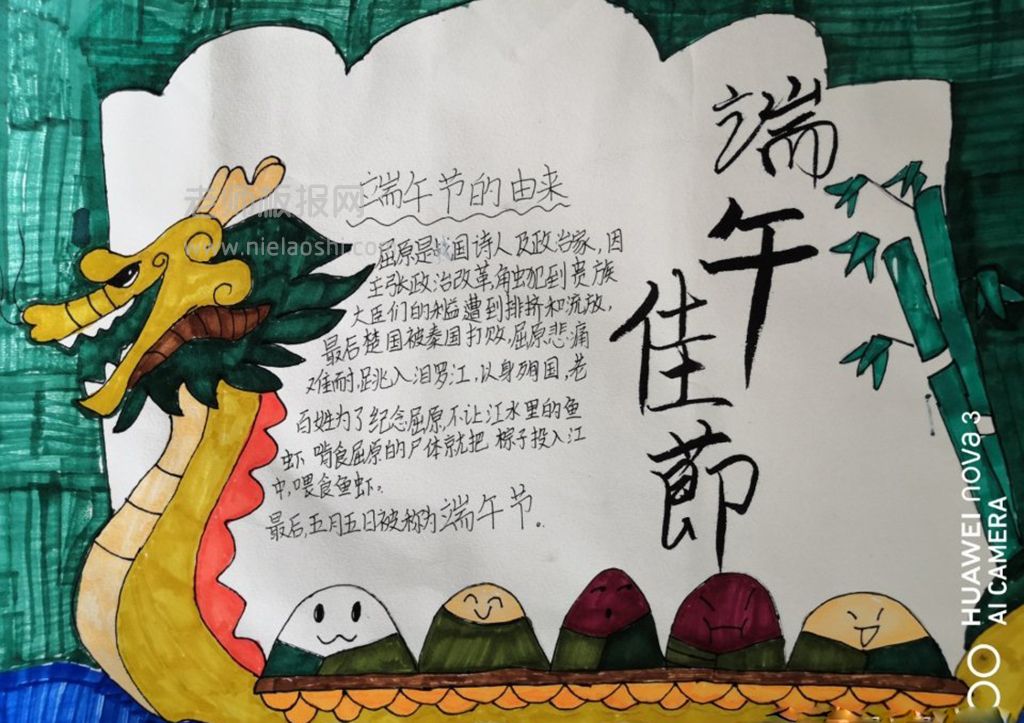 端午佳節
端午节的由来
屈原是我国诗人及政治家,因
主张政治改革,触犯到贵族
大臣们的利益遭到排挤和流放,
最后楚国被秦国打败,屈原悲痛
难耐,跳入汨罗江,以身殉国,老
百姓为了纪念屈原,不让江水里的鱼
虾啃食屈原的尸体就把粽子投入江
中,喂食鱼虾。
最后,五月五日被称为端午节。
老师板报网
www.nielaoshi.co
HUAWEI nova 3
AI CAMERA